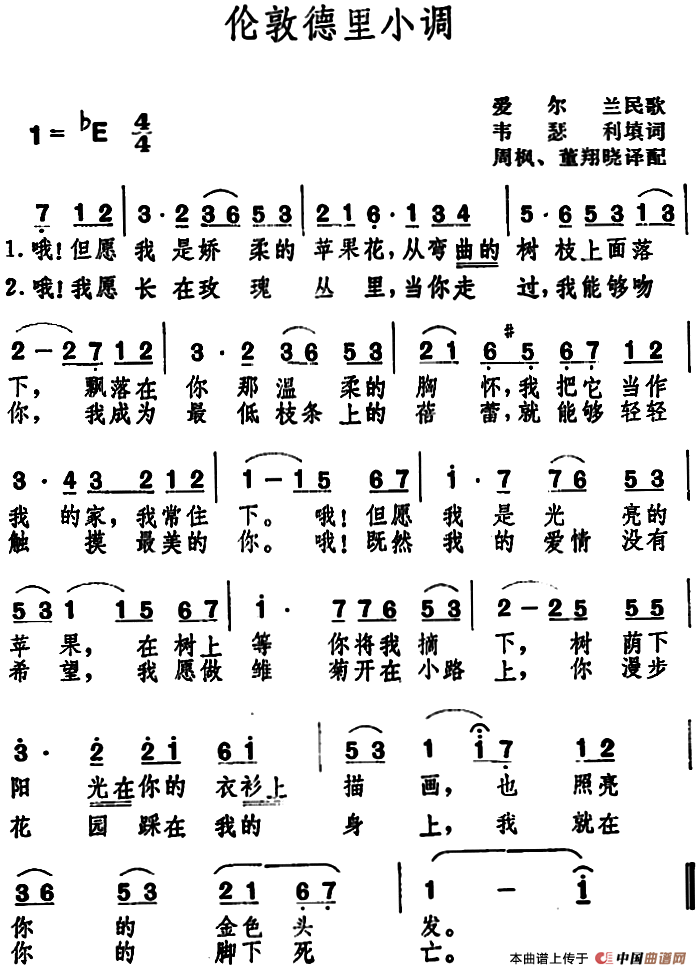 伦敦德里小调
爱尔兰民歌
1=♭E 4/4
韦瑟利填词
周枫、董翔晓译配
7 12 | 3·2 36 53 | 216·134 | 5·6 53 13
1.哦!但愿我是娇柔的苹果花,从弯曲的树枝上面落
2.哦!我愿长在玫瑰丛里,当你走过,我能够吻
2-2712 | 3·2 36 53 | 21 6 #5 67 12
下,飘落在你那温柔的胸怀,我把它当作
你,我成为最低枝条上的蓓蕾,就能够轻轻
3·43 212 | 1-15 67 | i·7 76 53
我的家,我常住下。哦!但愿我是光亮的
触摸最美的你。哦!既然我的爱情没有
53 1 15 67 | i· 7 76 53 | 2-25 55
苹果,在树上等你将我摘下,树荫下
希望,我愿做雏菊开在小路上,你漫步
3·2 2i 6i | 53 1 i7 12
阳光在你的衣衫上描画,也照亮
花园踩在我的身上,我就在
36 53 21 67 | 1 - i
你的金色头发。
你的脚下死亡。
本曲谱上传于 中国曲谱网